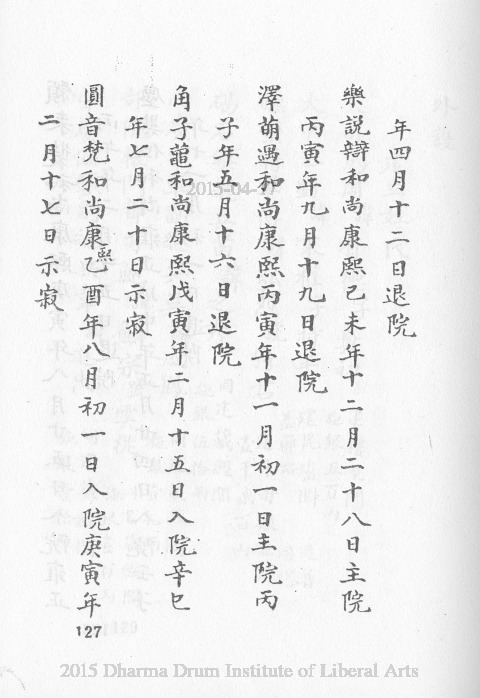 年四月十二日退院
樂説辯和尚康熙己未年十二月二十八日主院
丙寅年九月十九日退院
澤萌遇和尚康熙丙寅年十一月初一日主院丙
子年五月十六日退院
角子𦿆和尚康熙戊寅年二月十五日入院辛巳
年七月二十日示寂
圓音梵和尚康熙乙酉年八月初一日入院庚寅年
二月十七日示寂
127
2015-04-27
2015 Dharma Drum Institute of Liberal Arts